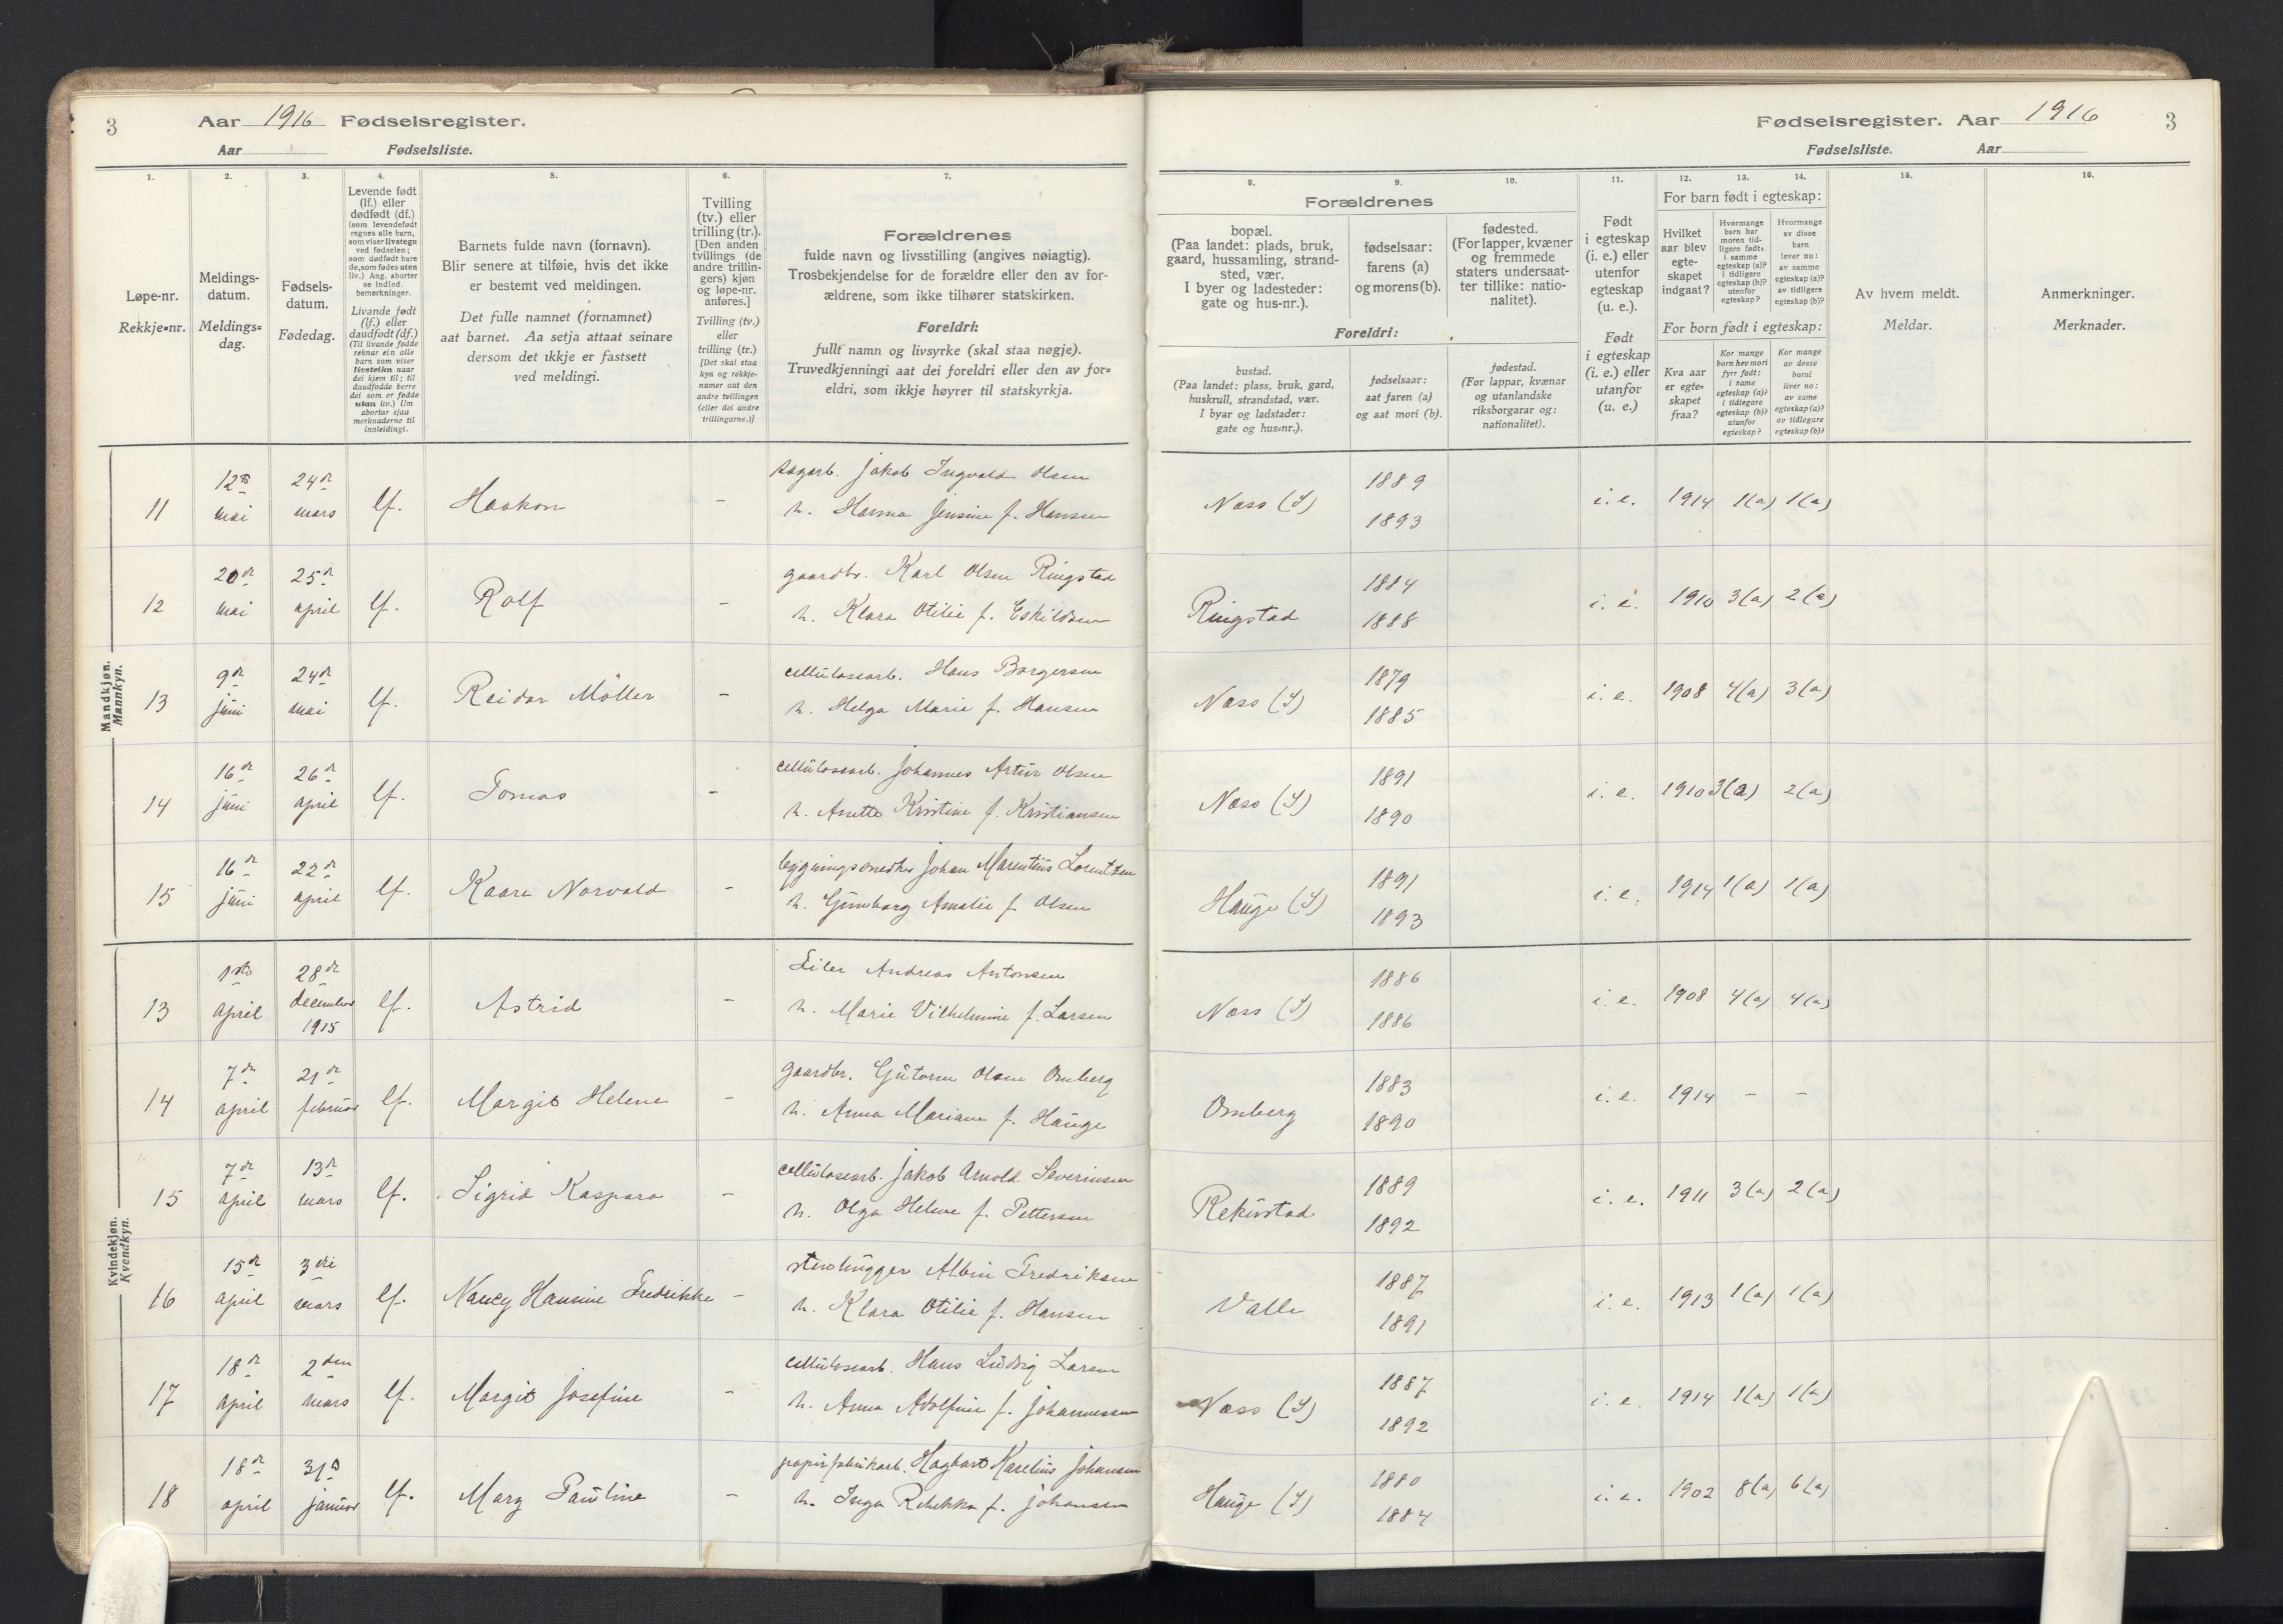 3 Aar 1916 Fødselsregister.
Aar Fødselsliste.
1. 2. 3. 4. 5. 6. 7.
Løpe-nr.
Rekkje-nr.
Meldings-
datum.
Meldings-
dag.
Fødsels-
datum.
Fødedag.
Levende født
(lf.) eller
dødfødt (df.)
(som levendefødt
regnes alle barn,
som viser livstegn
ved fødselen;
som dødfødt bare
de, som fødes uten
liv.) Ang. aborter
se indled.
bemerkninger.
Livande født
(lf.) eller
daudfødt (df.)
(Til livande fødde
reknar ein alle
barn som viser
livsteikn naar
dei kjem til; til
daudfødde berre
dei som er fødde
utan liv.) Um
abortar sjaa
merknaderne til
innleidingi.
Barnets fulde navn (fornavn).
Blir senere at tilføie, hvis det ikke
er bestemt ved meldingen.
Det fulle namnet (fornamnet)
aat barnet. Aa setja attaat seinare
dersom det ikkje er fastsett
ved meldingi.
Tvilling
(tv.) eller
trilling (tr.).
[Den anden
tvillings (de
andre trillin-
gers) kjøn
og løpe-nr.
anføres.]
Tvilling (tv.)
eller
trilling (tr.)
[Det skal staa
kyn og rekkje-
numer aat den
andre tvillingen
(eller dei andre
trillingarne.)]
Forældrenes
fulde navn og livsstilling (angives nøiagtig).
Trosbekjendelse for de forældre eller den av for-
ældrene, som ikke tilhører statskirken.
Foreldri:
fullt namn og livsyrke (skal staa nøgje).
Truvedkjenningi aat dei foreldri eller den av for-
eldri, som ikkje høyrer til statskyrkja.
Mandkjøn.
Mannkyn.
11 12te mai 24de mars lf. Haakon -
sagarb. Jakob Ingvald Olsen
h. Hanna Jensine f. Hansen
12 20de mai 25de april lf. Rolf -
gaardbr. Karl Olsen Ringstad
h. Klara Otilie f. Eskildsen
13 9de juni 24de mai lf. Reidar Möller -
cellulosearb. Hans Borgersen
h. Helga Marie f. Hansen
14 16de juni 26de april lf. Tomas -
cellulosearb. Johannes Artur Olsen
h. Anette Kristine f. Kristiansen
15 16de juni 22de april lf. Kaare Norvald -
bygningssnedker Johan Marentius Lorentzen
h. Gunborg Amalie f. Olsen
Kvindekjøn.
Kvendkyn.
13 1ste april 28de december 1915 lf. Astrid -
Eiler Andreas Antonsen
h. Marie Vilhelmine f. Larsen
14 7de april 21de februar lf. Margit Helene -
gaardbr. Gutorm Olsen Omberg
h. Anna Mariane f. Hauge
15 7de april 13de mars lf. Sigrid Kaspara -
cellulosearb. Jakob Arnold Severinsen
h. Olga Helene f. Pettersen
16 15de april 3die mars lf. Nancy Hansine Fredrikke -
stenhugger Albin Fredriksen
h. Klara Otilie f. Hansen
17 18de april 2den mars lf. Margit Josefine -
cellulosearb. Hans Ludvig Larsen
h. Anna Adolfine f. Johannessen
18 18de april 31te januar lf. Mary Pauline -
papirfabrikarb. Hagbart Marelius Johansen
h. Inga Rebekka f. Johansen
Fødselsregister. Aar 1916 3
Fødselsliste. Aar
8. 9. 10. 11. 12. 13. 14. 15. 16.
Forældrenes
bopæl.
(Paa landet: plads, bruk,
gaard, hussamling, strand-
sted, vær.
I byer og ladesteder:
gate og hus-nr.).
fødselsaar:
farens (a)
og morens (b).
fødested.
(For lapper, kvæner
og fremmede
staters undersaat-
ter tillike: natio-
nalitet).
Foreldri:
bustad.
(Paa landet: plass, bruk, gard,
huskrull, strandstad, vær.
I byar og ladstader:
gate og hus-nr.).
fødselsaar:
aat faren (a)
og aat mori (b).
fødestad.
(For lappar, kvænar
og utanlandske
riksborgarar og:
nationalitet).
Født
i egteskap
(i. e.) eller
utenfor
egteskap
(u. e.).
Født
i egteskap
(i. e.) eller
utanfor
(u. e.)
For barn født i egteskap:
Hvilket
aar blev
egte-
skapet
indgaat?
Hvormange
barn har
moren tid-
ligere født:
i samme
egteskap (a)?
i tidligere
egteskap (b)?
utenfor
egteskap?
Hvormange
av disse
barn
lever nu:
av samme
egteskap (a)?
av tidligere
egteskap (b)?
For born født i egteskap:
Kva aar
er egte-
skapet
fraa?
Kor mange
born hev mori
fyrr født:
i same
egteskap (a)?
i tidlegare
egteskap (b)?
utanfor
egteskap?
Kor mange
av desse
borni
liver no:
av same
egteskap (a)?
av tidlegare
egteskap (b)?
Av hvem meldt.
Meldar.
Anmerkninger.
Merknader.
Næss (S) 1889 1893 i. e. 1914 1(a) 1(a)
Ringstad 1884 1888 i. e. 1910 3(a) 2(a)
Næss (S) 1879 1885 i. e. 1908 4(a) 3(a)
Næss (S) 1891 1890 i. e. 1910 3(a) 2(a)
Hauge (S) 1891 1893 i. e. 1914 1(a) 1(a)
Næss (S) 1886 1886 i. e. 1908 4(a) 4(a)
Omberg 1883 1890 i. e. 1914 - -
Rekustad 1889 1892 i. e. 1911 3(a) 2(a)
Valle 1887 1891 i. e. 1913 1(a) 1(a)
Næss (S) 1887 1892 i. e. 1914 1(a) 1(a)
Hauge (S) 1880 1884 i. e. 1902 8(a) 6(a)